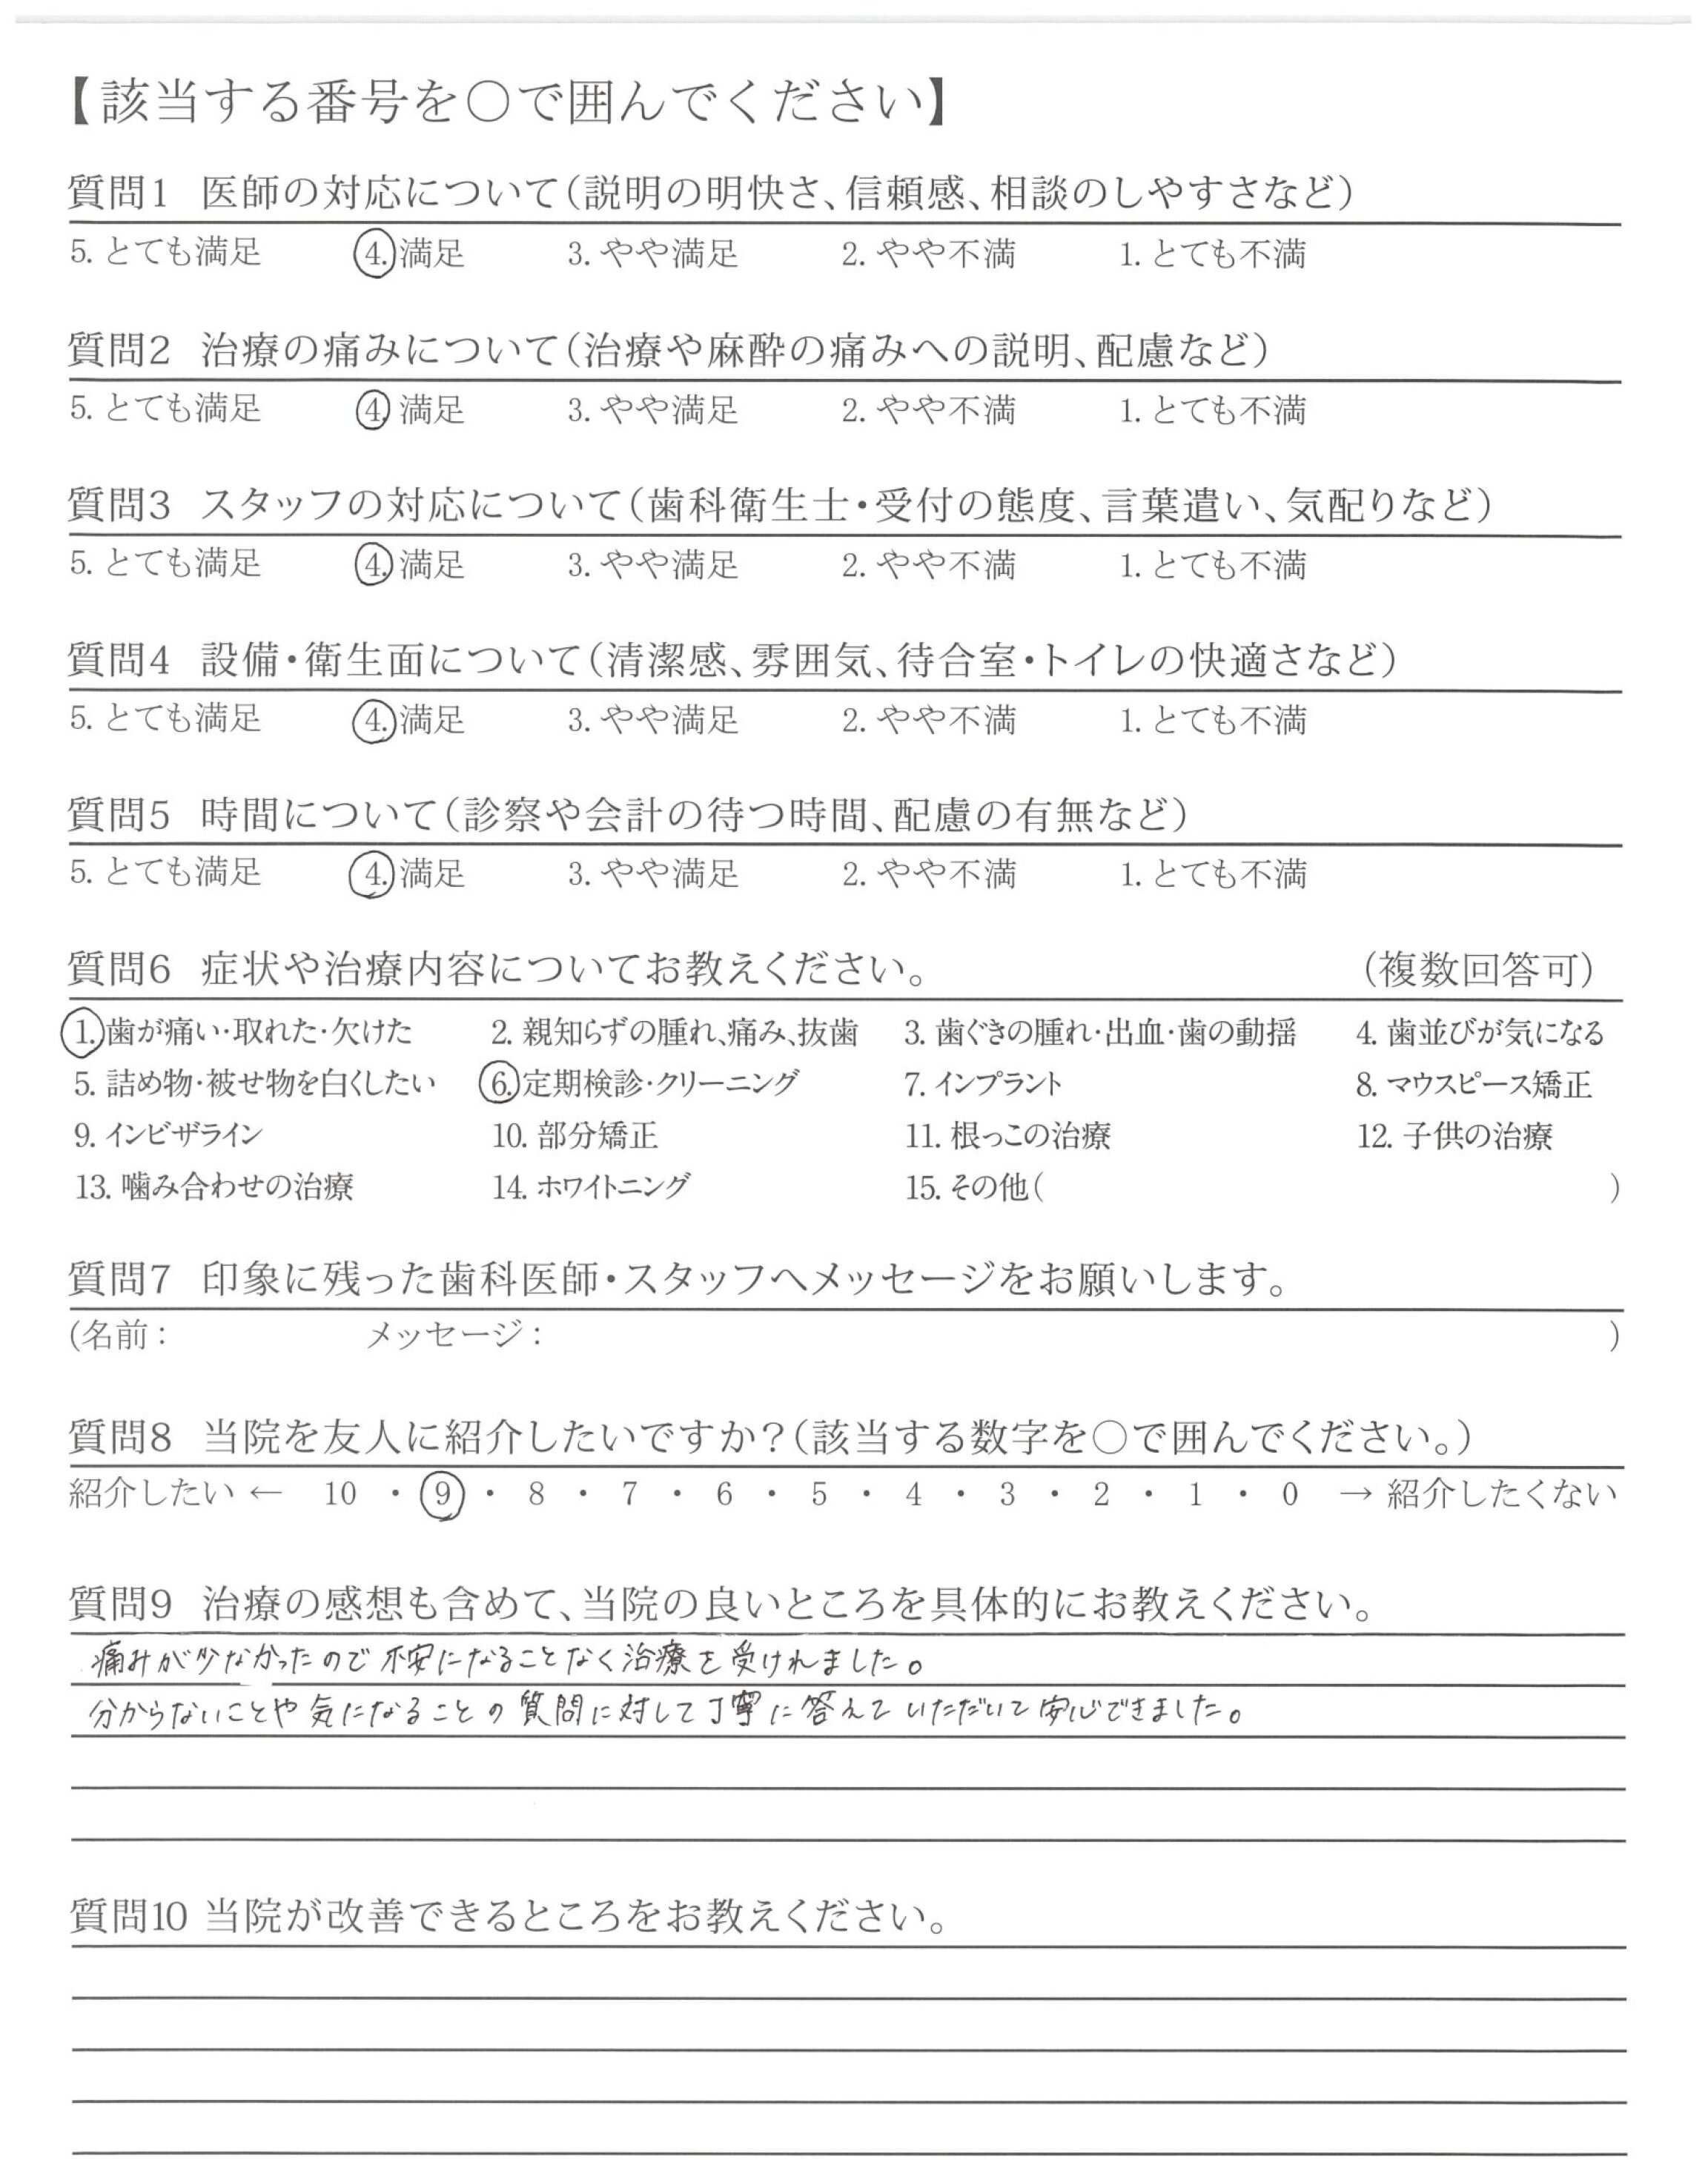 【該当する番号を○で囲んでください】
質問1 医師の対応について(説明の明快さ、信頼感、相談のしやすさなど)
5. とても満足 4. 満足 3. やや満足 2. やや不満 1. とても不満
質問2 治療の痛みについて(治療や麻酔の痛みへの説明、配慮など)
5. とても満足 4. 満足 3. やや満足 2. やや不満 1. とても不満
質問3 スタッフの対応について(歯科衛生士・受付の態度、言葉遣い、気配りなど)
5. とても満足 4. 満足 3. やや満足 2. やや不満 1. とても不満
質問4 設備・衛生面について(清潔感、雰囲気、待合室・トイレの快適さなど)
5. とても満足 4. 満足 3. やや満足 2. やや不満 1. とても不満
質問5 時間について(診察や会計の待つ時間、配慮の有無など)
5. とても満足 4. 満足 3. やや満足 2. やや不満 1. とても不満
質問6 症状や治療内容についてお教えください。 (複数回答可)
1. 歯が痛い・取れた・欠けた 2. 親知らずの腫れ、痛み、抜歯 3. 歯ぐきの腫れ・出血・歯の動揺 4. 歯並びが気になる
5. 詰め物・被せ物を白くしたい 6. 定期検診・クリーニング 7. インプラント 8. マウスピース矯正
9. インビザライン 10. 部分矯正 11. 根っこの治療 12. 子供の治療
13. 噛み合わせの治療 14. ホワイトニング 15. その他( )
質問7 印象に残った歯科医師・スタッフへメッセージをお願いします。
(名前: メッセージ: )
質問8 当院を友人に紹介したいですか?(該当する数字を○で囲んでください。)
紹介したい ← 10 ・ 9 ・ 8 ・ 7 ・ 6 ・ 5 ・ 4 ・ 3 ・ 2 ・ 1 ・ 0 → 紹介したくない
質問9 治療の感想も含めて、当院の良いところを具体的にお教えください。
痛みが少なかったので不安になることなく治療を受けれました。
分からないことや気になることの質問に対して丁寧に答えていただいて安心できました。
質問10 当院が改善できるところをお教えください。